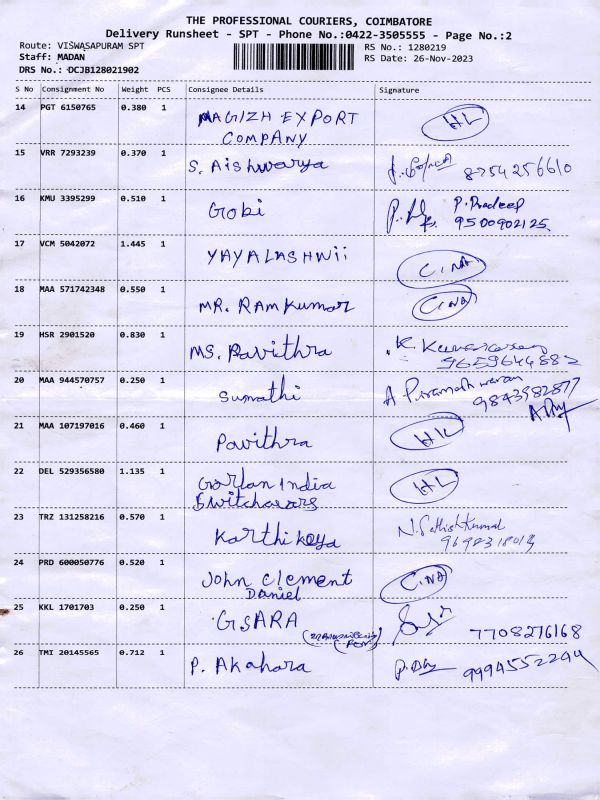 THE PROFESSIONAL COURIERS, COIMBATORE
Delivery Runsheet - SPT - Phone No.:0422-3505555 - Page No.:2
Route: VISWASAPURAM SPT
RS No.: 1280219
Staff: MADAN
RS Date: 26-Nov-2023
DRS No.: DCJB128021902
S No Consignment No Weight PCS Consignee Details Signature
14 PGT 6150765 0.380 1 MAGIZH EXPORT
COMPANY HL
15 VRR 7293239 0.370 1 S. Aishwarya 8754256610
16 KMU 3395299 0.510 1 Gobi P. Pradeep
9500902125
17 VCM 5042072 1.445 1 YAYALASHWii C.NA
18 MAA 571742348 0.550 1 MR. RAMKumar C.NA
19 HSR 2901520 0.830 1 MS. Pavithra K.
9659644882
20 MAA 944570757 0.250 1 Sumathi A
9843982877
21 MAA 107197016 0.460 1 Pavithra HL
22 DEL 529356580 1.135 1 India HL
23 TRZ 131258216 0.570 1 Karthikeya N. Sathishkumar
24 PRD 600050776 0.520 1 John Clement
Daniel C.NA
25 KKL 1701703 0.250 1 GSARA
7708276168
26 TMI 20145565 0.712 1 P. Akahara 9994552294